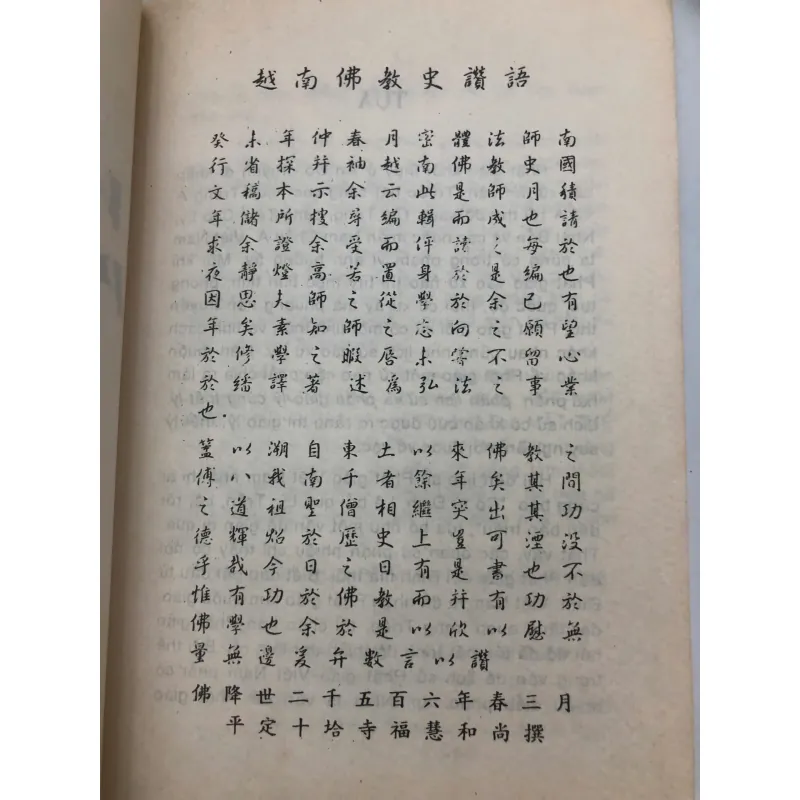 越南佛教史讚語
癸未年仲春月密體法師南
行省探并袖越南佛教史國
文稿本示余云此是師月積
年儲所搜尋編輯而成也請
求余證余受而評讀之每於
夜靜燈高若置身於是編也
因思夫師之從學於余已有
年矣素知師之忘向之願望
於修學之暇唇未嘗不留心
於繙譯著述為弘法之事業
也.
蓋以溯自東土以來佛教之
傅八我南千者餘年矣其間
之道祖聖僧相繼突出其功
德輝焰於歷史上豈可湮沒
乎哉今日之日有是書也不
惟有功於佛教而并有功於
佛學也余於是以欣以慰無
量無邊爰弁數言以讚
佛降世二千五百六年春三月
平定十塔寺福慧和尚撰